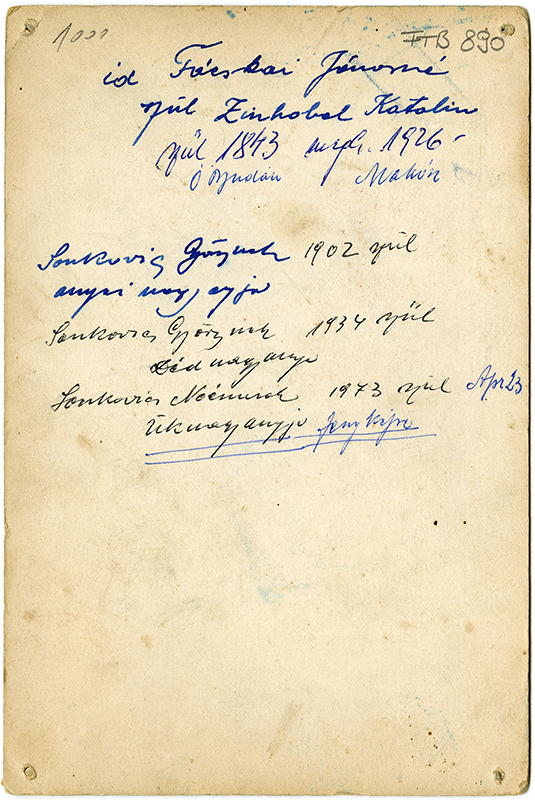 1000
FTB 890
id Fácskai Jánosné
szül Zinhobel Katalin
szül 1843 megh. 1926
Ó Budán Makón
Sonkovics Györgynek 1902 szül
anyai nagyanyja
Sonkovics Györgynek 1934 szül
Dédnagyanyja
Sonkovics Noéminek 1973 szül Apr 23
ük nagyanyja fényképe